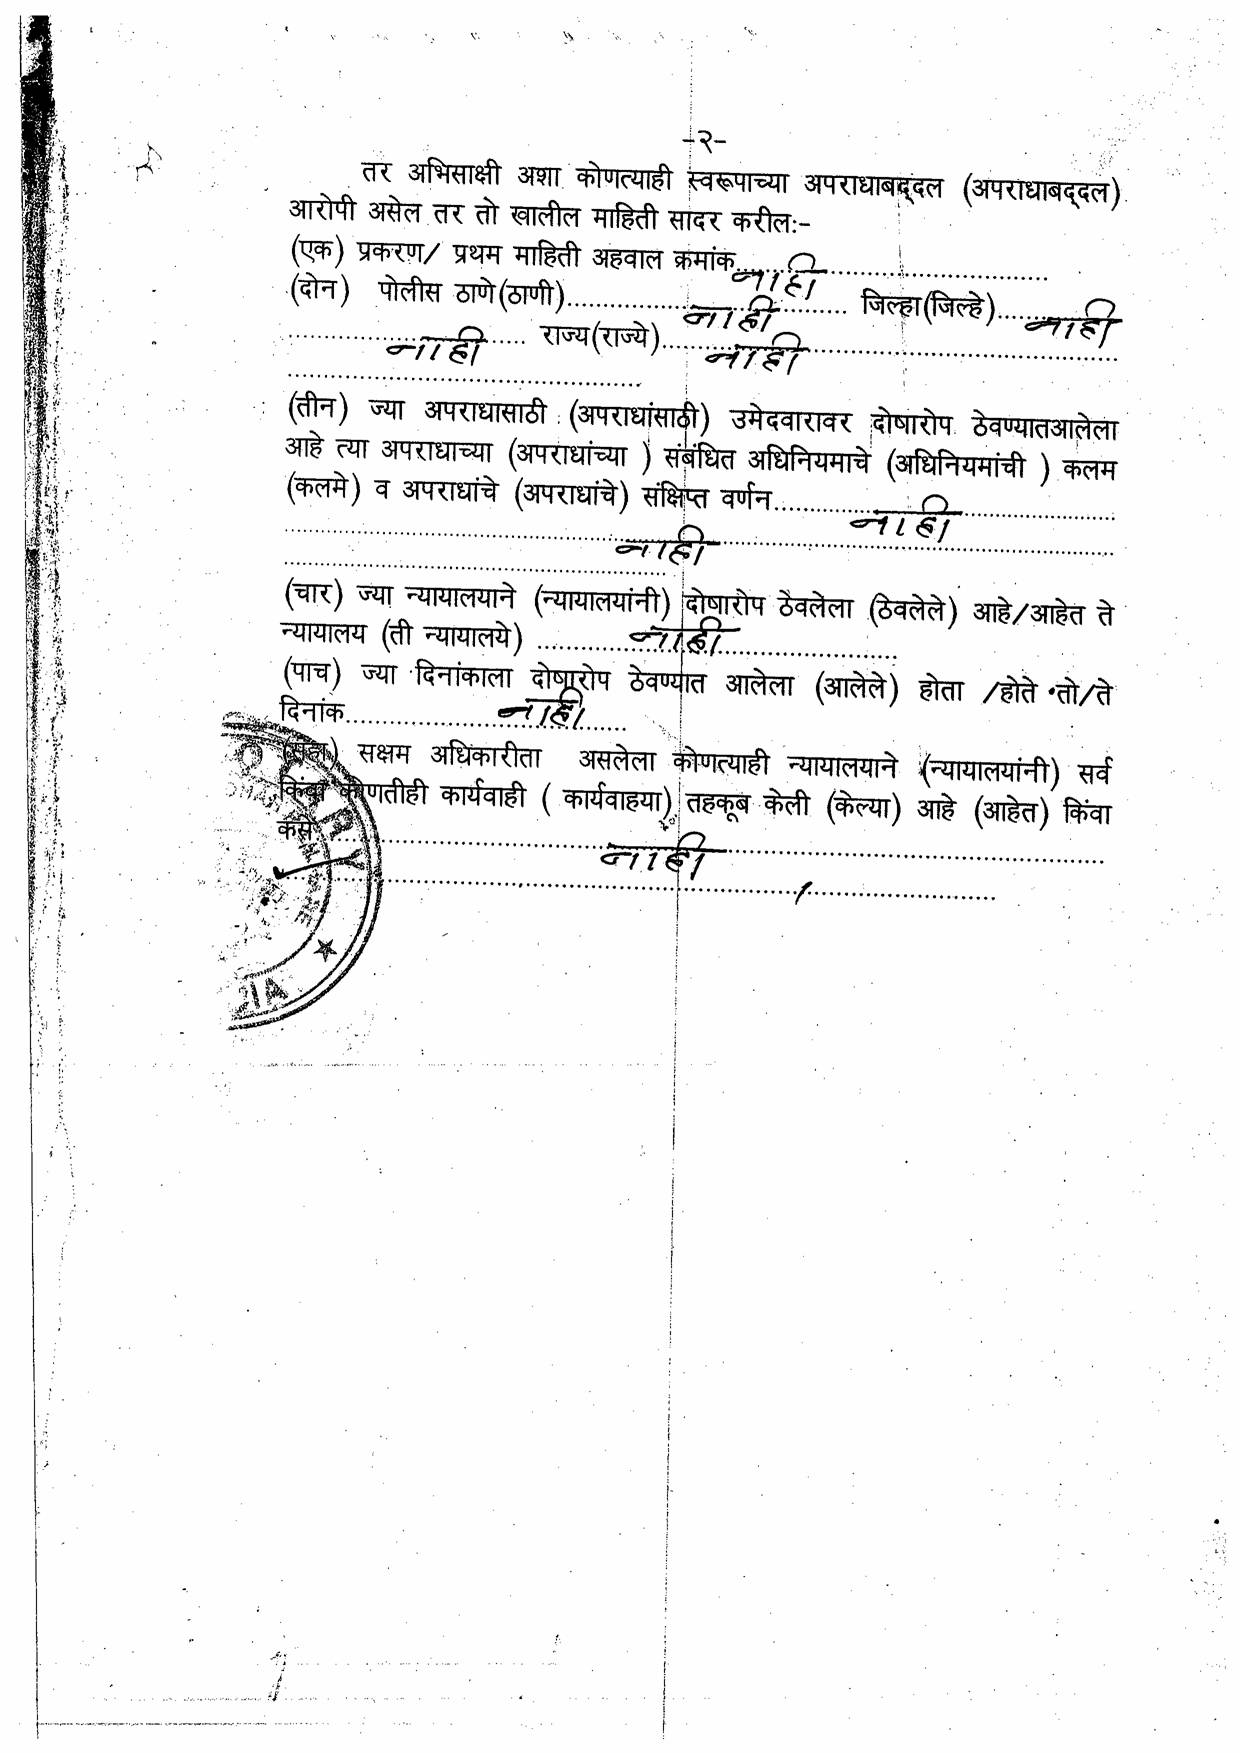 -२-
तर अभिसाक्षी अशा कोणत्याही स्वरूपाच्या अपराधाबद्दल (अपराधाबद्दल)
आरोपी असेल तर तो खालील माहिती सादर करील:-
(एक) प्रकरण/ प्रथम माहिती अहवाल क्रमांक.......नाही.......
(दोन) पोलीस ठाणे(ठाणी).......नाही....... जिल्हा(जिल्हे).......नाही
.......नाही....... राज्य(राज्ये).......नाही.......
(तीन) ज्या अपराधासाठी (अपराधांसाठी) उमेदवारावर दोषारोप ठेवण्यातआलेला
आहे त्या अपराधाच्या (अपराधांच्या ) संबंधित अधिनियमाचे (अधिनियमांची ) कलम
(कलमे) व अपराधांचे (अपराधांचे) संक्षिप्त वर्णन.......नाही.......
.......नाही.......
(चार) ज्या न्यायालयाने (न्यायालयांनी) दोषारोप ठेवलेला (ठेवलेले) आहे/आहेत ते
न्यायालय (ती न्यायालये) .......नाही.......
(पाच) ज्या दिनांकाला दोषारोप ठेवण्यात आलेला (आलेले) होता /होते तो/ते
दिनांक.......नाही.......
(सहा) सक्षम अधिकारीता असलेला कोणत्याही न्यायालयाने (न्यायालयांनी) सर्व
किंवा कोणतीही कार्यवाही ( कार्यवाहया) तहकूब केली (केल्या) आहे (आहेत) किंवा
कसे.......नाही.......